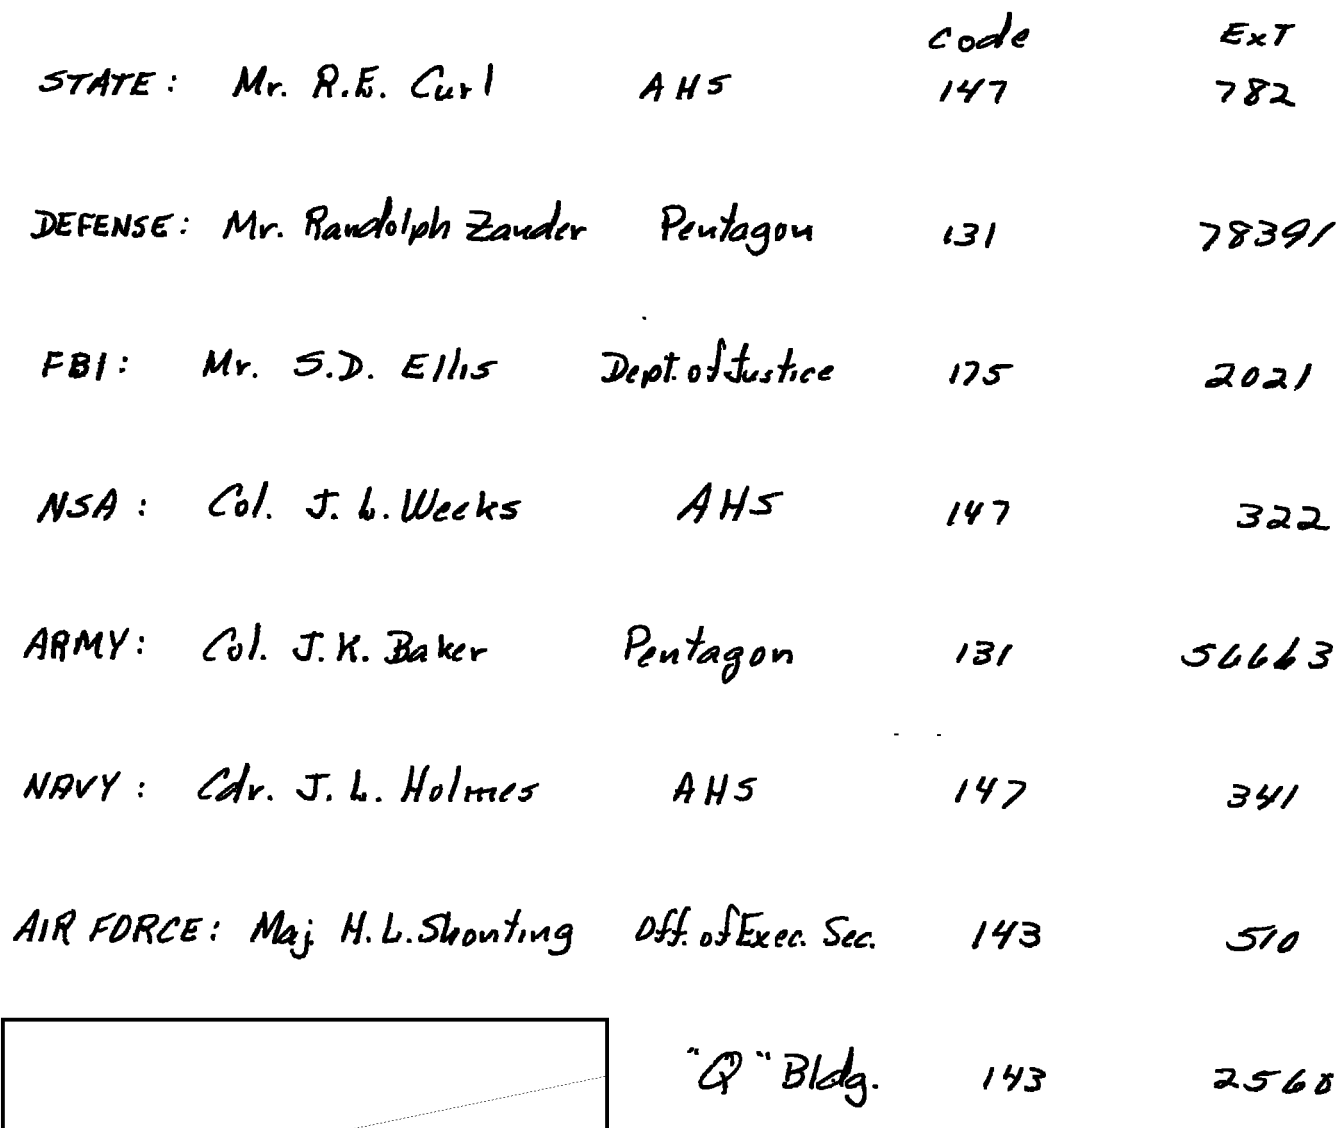 Code ExT
STATE: Mr. R.E. Curl AHS 147 782
DEFENSE: Mr. Randolph Zander Pentagon 131 78391
FBI: Mr. S.D. Ellis Dept. of Justice 175 2021
NSA: Col. J. L. Weeks AHS 147 322
ARMY: Col. J.K. Baker Pentagon 131 56663
NAVY: Cdr. J. L. Holmes AHS 147 341
AIR FORCE: Maj. H. L. Shonting Off. of Exec. Sec. 143 510
"Q" Bldg. 143 2560